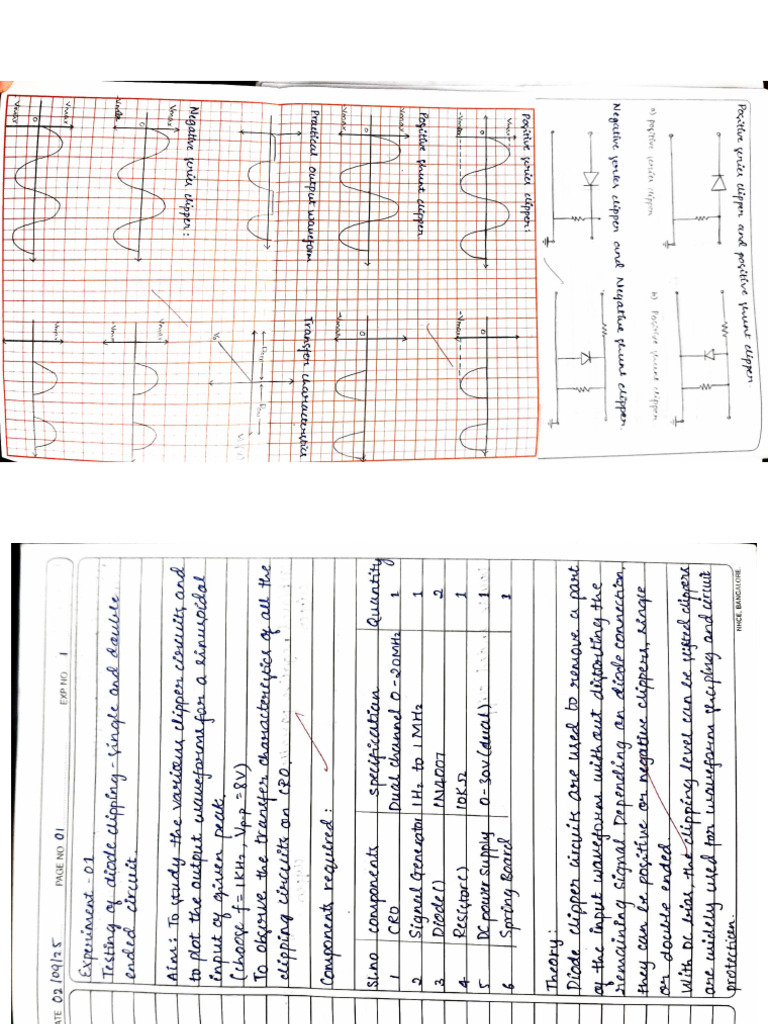 Positive series clipper and positive shunt clipper.
a) positive series clipper
b) Positive shunt clipper
Negative series clipper and Negative shunt clipper.
Positive series clipper:
Vmax
0
-Vmax
0
-Vmax
Positive shunt clipper
Vmax
0
-Vmax
0
-Vmax
Practical output waveform
Transfer characteristics
Negative series clipper:
Vmax
0
-Vmax
Vmax
0
-Vmax
DATE 02/09/25
PAGE NO 01
EXP NO 1
Experiment - 01
Testing of diode clipping - single and double
ended circuit.
Aim: To study the various clipper circuits and
to plot the output waveforms for a sinusoidal
input of given peak.
(choose f = 1KHz, Vp-p = 8V)
To observe the transfer characteristics of all the
clipping circuits on CRO.
Components required:
Sl.no components specification Quantity
1 CRO Dual channel 0-20MHz 1
2 Signal Generator 1Hz to 1MHz 1
3 Diode() 1N4007 2
4 Resistor() 10KΩ 1
5 DC power supply 0-30V (dual) 1
6 Spring Board 1
Theory:
Diode clipper circuits are used to remove a part
of the input waveform without distorting the
remaining signal. Depending on diode connection,
they can be positive or negative clippers, single
or double ended.
With DC bias, the clipping level can be shifted clippers
are widely used for waveform shaping and circuit
protection.
NHCE, BANGALORE